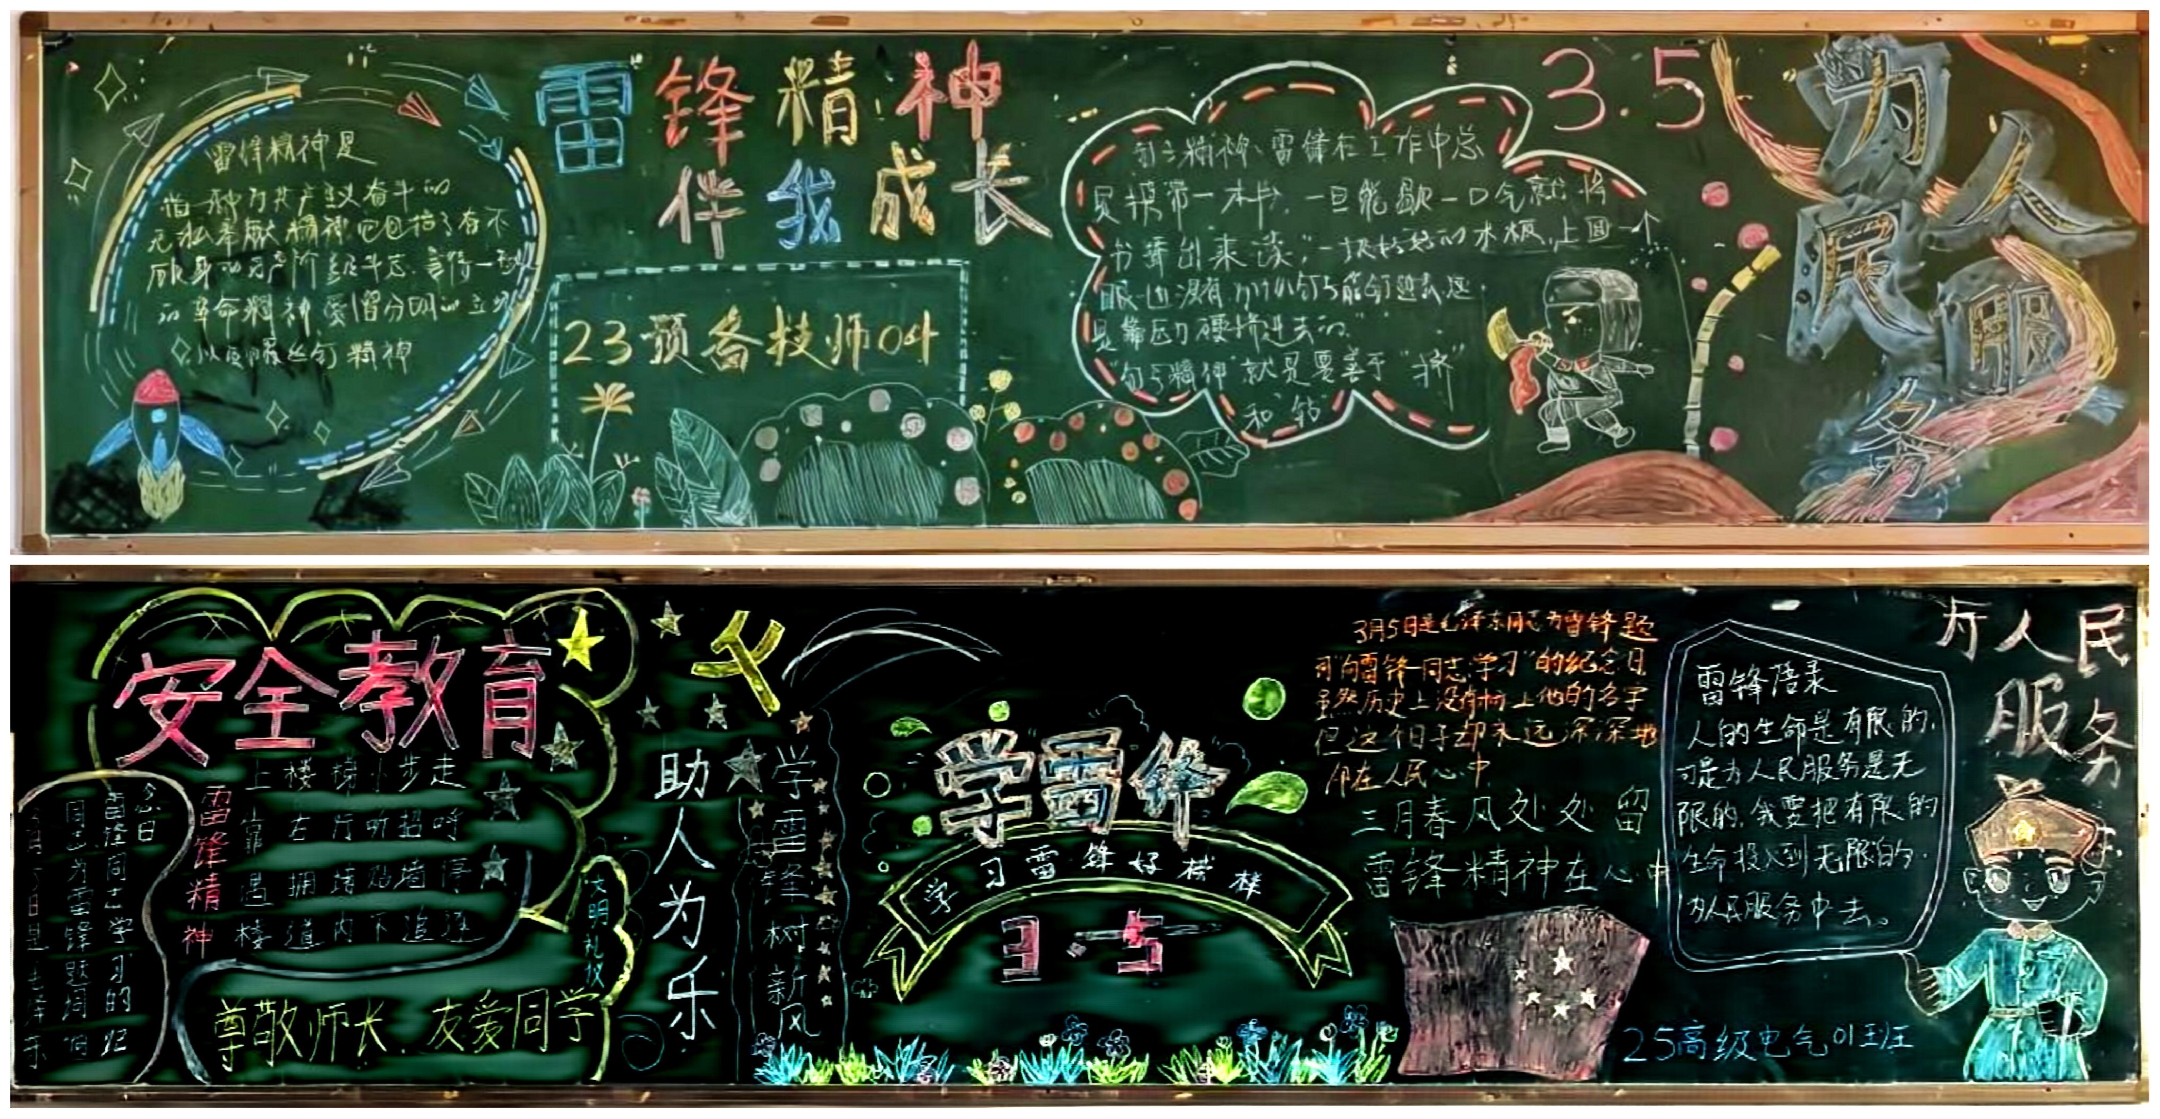 雷锋精神
伴我成长
3.5
为人民服务
雷锋精神是
指一种为共产主义奋斗的
无私奉献精神,它包括了奋不
顾身的无产阶级斗志、言行一致
的革命精神 爱憎分明的立场
以及螺丝钉精神
23预备技师04
钉子精神、雷锋在工作中总
是携带一本书,一旦能歇一口气就将
书拿出来读,"一块好好的木板,上面一
眼也没有
是靠压力硬挤进去的."
"钉子精神"就是要善于"挤"
和"钻"
安全教育
上楼梯 步走
靠右行听招呼
遇拥堵贴墙停
楼道内 追逐
雷锋精神
念日
雷锋同志学习的纪
同志为雷锋题词的
三月5日是毛泽东
尊敬师长、友爱同学
文明礼仪
助人为乐
学雷锋树新风
学雷锋
学习雷锋好榜样
3.5
3月5日是毛泽东同志为雷锋题
词"向雷锋同志学习"的纪念日
虽然历史上没有标上他的名字
但这个日子却永远深深地
印在人民心中
三月春风处处留
雷锋精神在心中
雷锋语录
人的生命是有限的,
可是为人民服务是无
限的,我要把有限的
生命投入到无限的
为人民服务中去。
为人民
服务
25高级电气01班